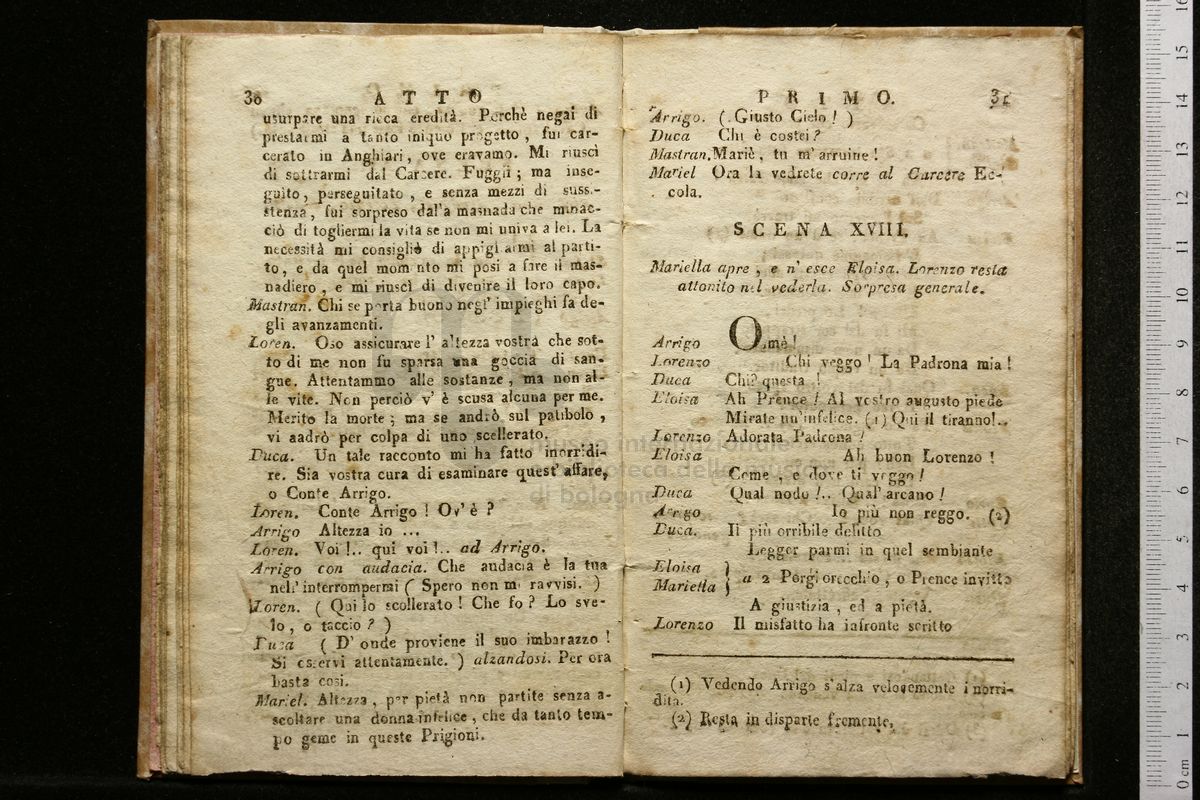 30 ATTO
usurpare una ricca eredità. Perchè negai di
prestarmi a tanto iniquo progetto, fui car-
cerato in Anghiari, ove eravamo. Mi riuscì
di sottrarmi dal Carcere. Fuggii; ma inse-
guito, perseguitato, e senza mezzi di suss.-
stenza, fui sorpreso dal'a masnada che minac-
ciò di togliermi la vita se non mi univa a lei. La
necessità mi consigliò di appigliarmi al parti-
to, e da quel mom nto mi posi a fare il mas-
nadiero, e mi riuscì di divenire il loro capo.
Mastran. Chi se porta buono negl' impieghi fa de-
gli avanzamenti.
Loren. Oso assicurare l' altezza vostra che sot-
to di me non fu sparsa una goccia di san-
gue. Attentammo alle sostanze, ma non al-
le vite. Non perciò v' è scusa alcuna per me.
Merito la morte; ma se andrò sul patibolo,
vi andrò per colpa di uno scellerato.
Duca. Un tale racconto mi ha fatto inorridi-
re. Sia vostra cura di esaminare quest' affare,
o Conte Arrigo.
Loren. Conte Arrigo! Ov' è?
Arrigo Altezza io ...
Loren. Voi!.. qui voi!.. ad Arrigo.
Arrigo con audacia. Che audacia è la tua
nell' interrompermi ( Spero non mi ravvisi. )
Loren. ( Qui lo scollerato! Che fo? Lo sve-
lo, o taccio? )
Duca ( D' onde proviene il suo imbarazzo!
Si osservi attentamente. ) alzandosi. Per ora
basta così.
Mariel. Altezza, per pietà non partite senza a-
scoltare una donna infelice, che da tanto tem-
po geme in queste Prigioni.
PRIMO. 31
Arrigo. (.Giusto Cielo! )
Duca Chi è costei?
Mastran. Mariè, tu m' arruine!
Mariel Ora la vedrete corre al Carcere Ec-
cola.
SCENA XVIII.
Mariella apre, e n' esce Eloisa. Lorenzo resta
attonito nel vederla. Sorpresa generale.
Arrigo Omè!
Lorenzo Chi veggo! La Padrona mia!
Duca Chi? questa!
Eloisa Ah Prence! Al vostro augusto piede
Mirate un' infelice. (1) Qui il tiranno!..
Lorenzo Adorata Padrona!
Eloisa Ah buon Lorenzo!
Come, e dove ti veggo!
Duca Qual nodo!.. Qual' arcano!
Arrigo Io più non reggo. (2)
Duca. Il più orribile delitto
Legger parmi in quel sembiante
Eloisa
Marietta } a 2 Porgi orecchio, o Prence invitto
A giustizia, ed a pietà.
Lorenzo Il misfatto ha infronte scritto
(1) Vedendo Arrigo s'alza velocemente inorri-
dita.
(2) Resta in disparte fremente,
museo internazionale
biblioteca della musica
di bologna
0 cm 1 2 3 4 5 6 7 8 9 10 11 12 13 14 15 16